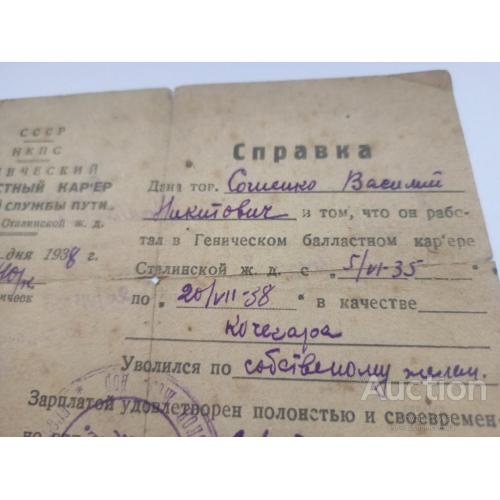 СССР
НКПС
НИЧЕСКИЙ
СТНЫЙ КАР'ЕР
СЛУЖБЫ ПУТИ
Сталинской ж. д.
дня 1938 г.
Справка
Дана тов. Василий
Никитович в том, что он рабо-
тал в Геническом балластном кар'ере
Сталинской ж. д. с „5/VI-35"
по „20/VII-38" в качестве
Кочегара
Уволился по собственому желан.
Зарплатой удовлетворен полностью и своевремен-
Auction